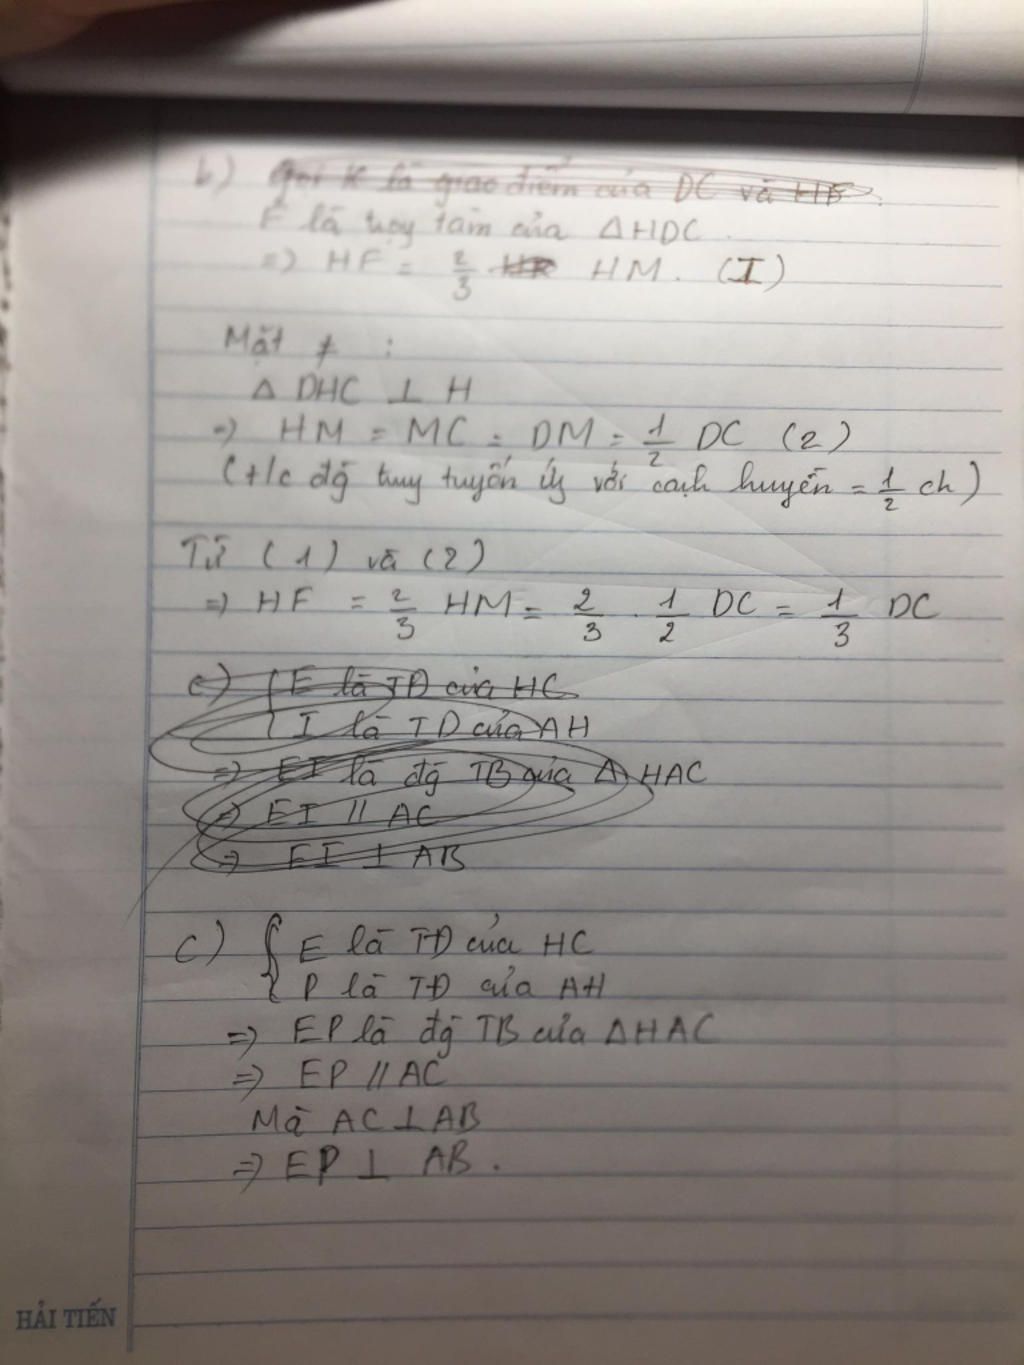 b) Gọi K là giao điểm của DC và HF.
F là trọg tâm của ΔHDC.
=) HF = 2/3 HK HM. (I)
Mặt ≠ :
Δ DHC ⊥ H
=) HM = MC = DM = 1/2 DC (2)
(t/c đg trug tuyến ứg với cạnh huyền = 1/2 ch)
Từ (1) và (2)
=) HF = 2/3 HM = 2/3 . 1/2 DC = 1/3 DC
c) { E là TĐ của HC
I là TĐ của AH
=) EI là đg TB của Δ HAC
=) EI // AC
=) EI ⊥ AB
c) { E là TĐ của HC
P là TĐ của AH
=) EP là đg TB của ΔHAC
=) EP // AC
Mà AC ⊥ AB
=) EP ⊥ AB.
HẢI TIẾN